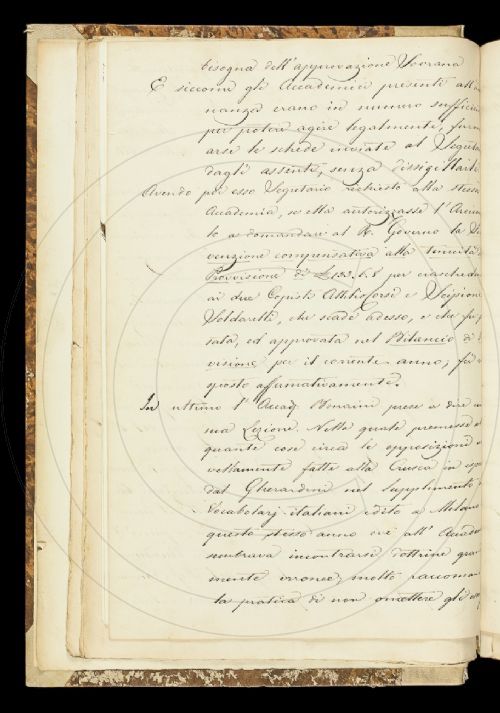 bisogna dell'approvazione Sovrana
E siccome gli Accademici presenti all'
nanza erano in numero sufficie
per poter agire legalmente, furo
arse le schede inviate al Segreta
dagli assenti, senza dissigillarle
Avendo poi esso Segretario richiesto alla stessa
Accademia, se ella autorizzasse l'Arcico
lo a domandare al R. Governo la So
venzione compensativa alla tenuità
Provvisione di per ciaschedu
ai due Copisti Attilio Corsi e Scipione
Soldarelli, che scade adesso, e che fu
sata, ed approvata nel Bilancio di
visione per il corrente anno; fu
sposto affirmativamente.
In ultimo l'Accad. Bonaini prese a dire
sua Lezione. Nella quale premesse
quante cose circa le opposizioni
vellamente fatte alla Crusca in
dal Gherardini nel Supplimento
Vocabolarj italiani edito a Milano
questo stesso anno ove all'Accade
sembrava incontrarsi dottrine
mente erronee, molto raccoman
la pratica di non omettere gli